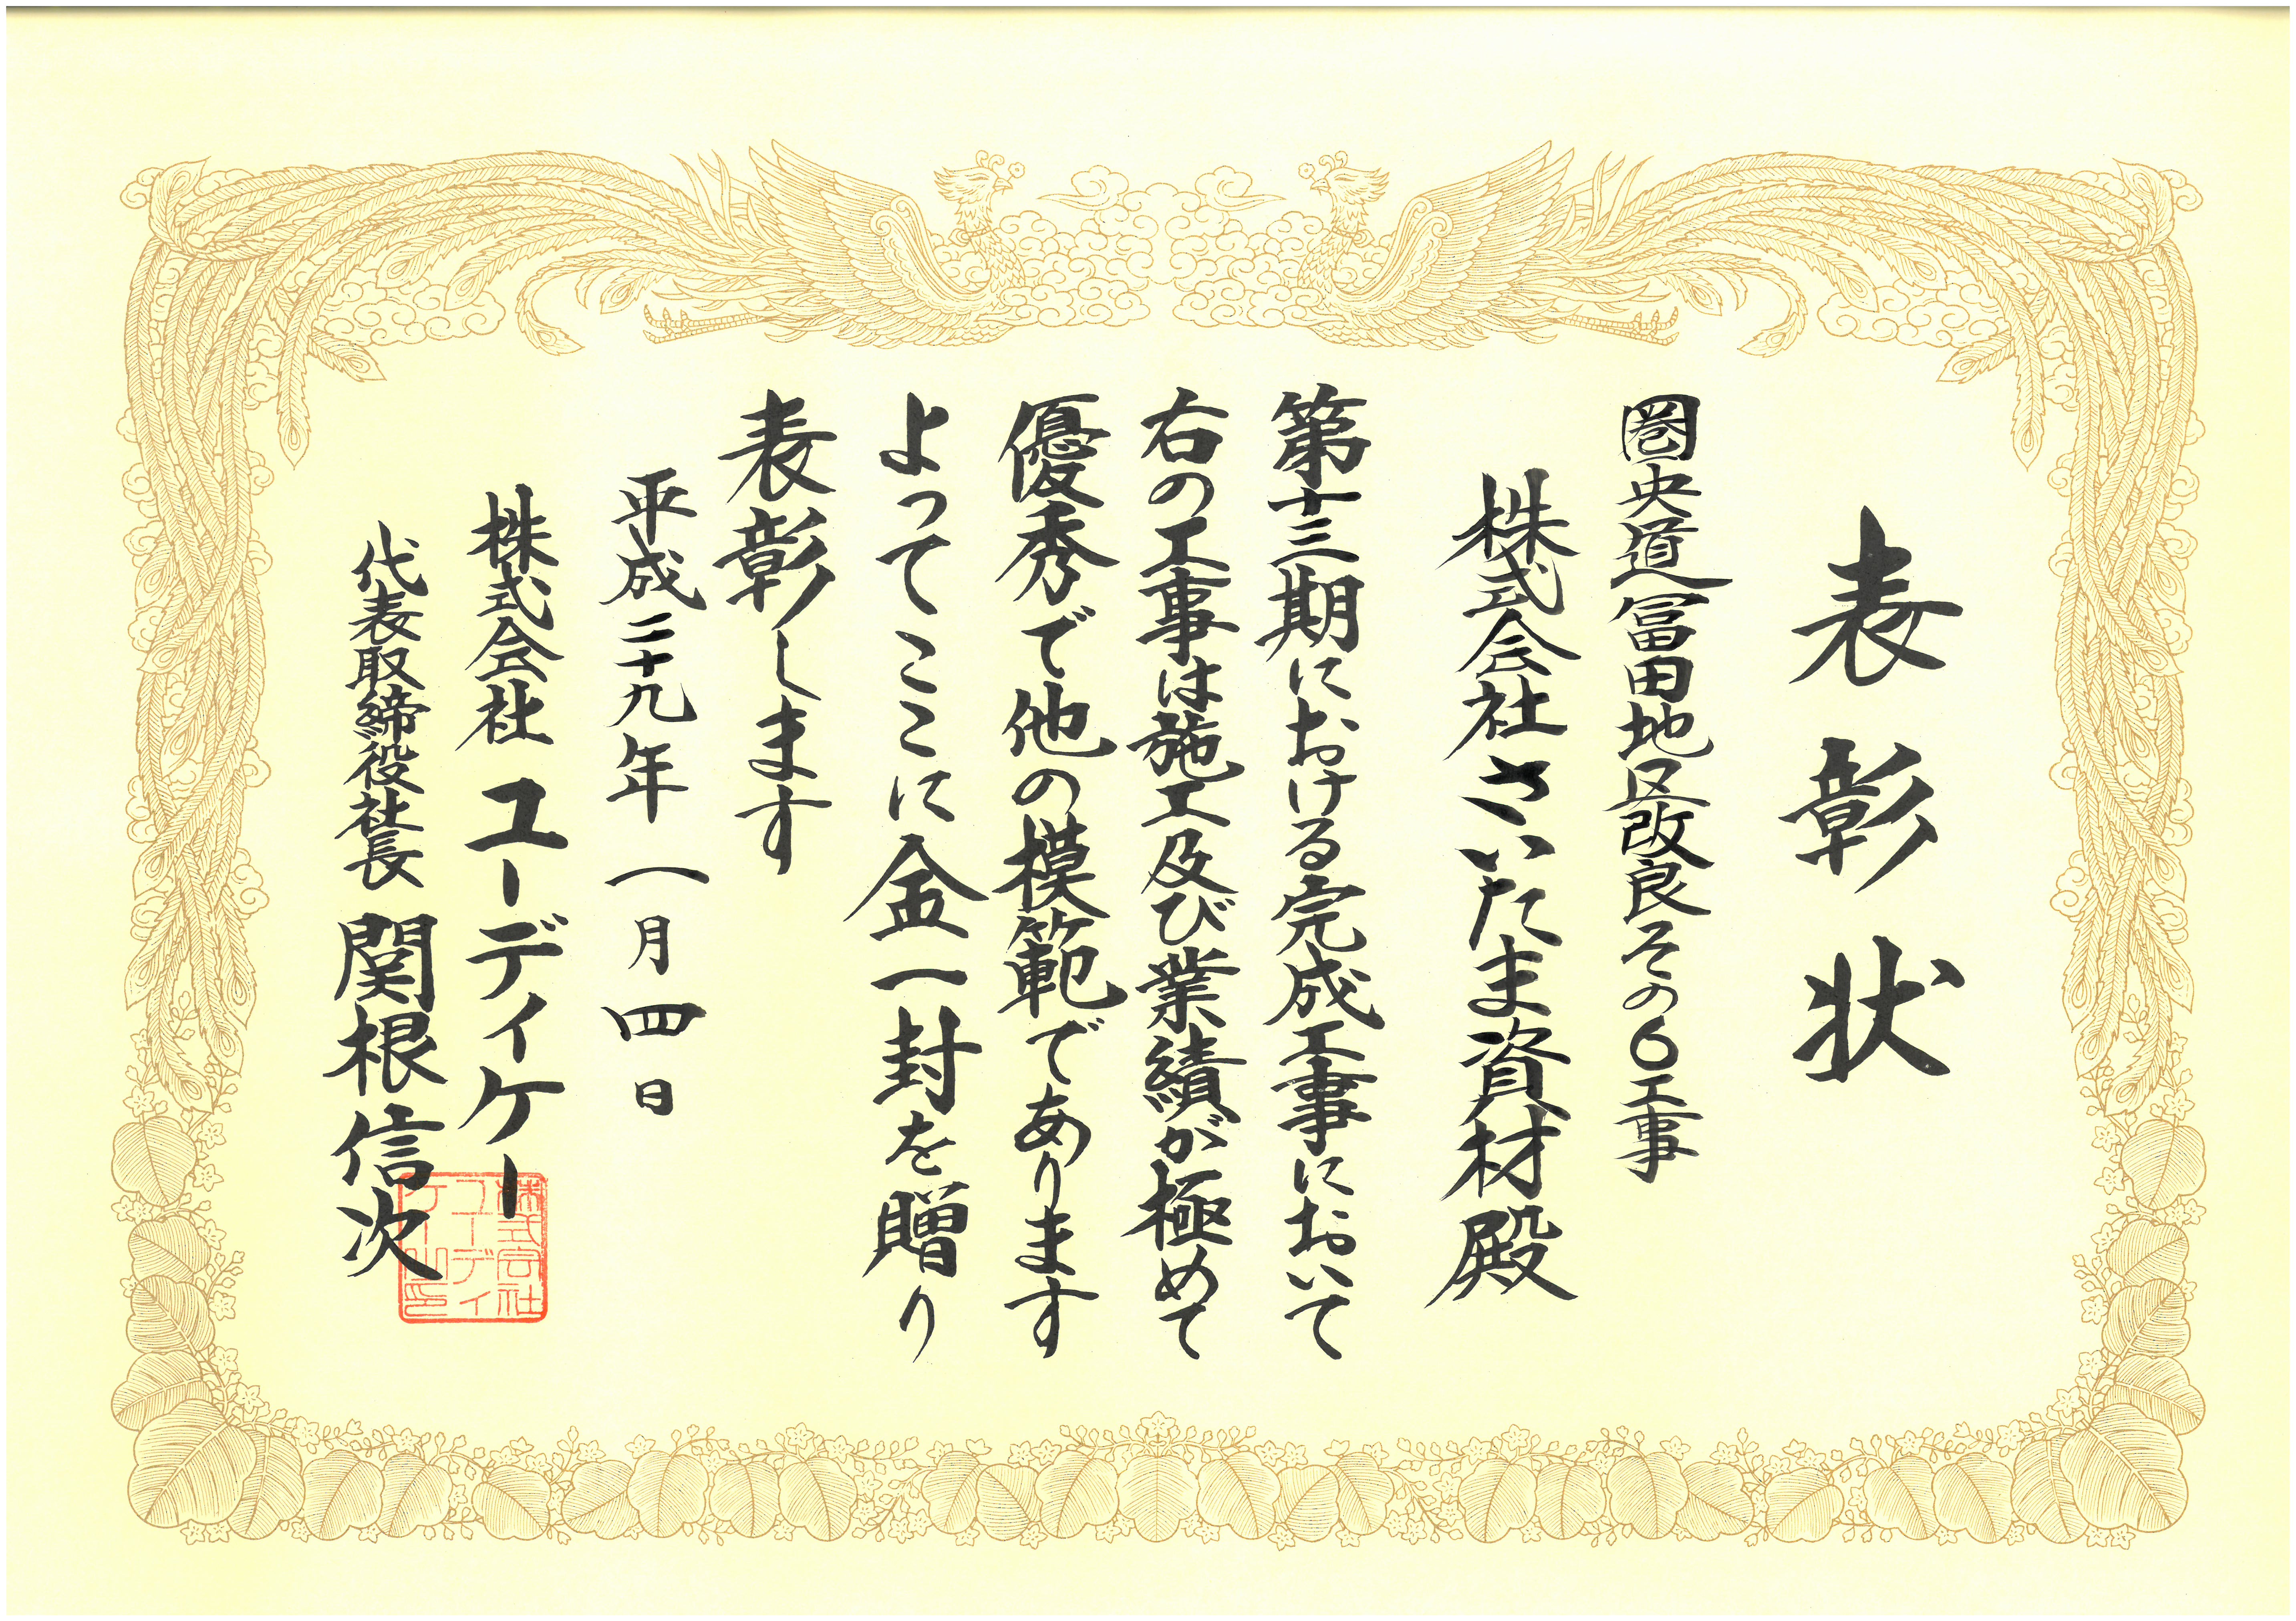 表彰状
圏央道冨田地区改良その6工事
株式会社さいたま資材殿
第十三期における完成工事において
右の工事は施工及び業績が極めて
優秀で他の模範であります
よってここに金一封を贈り
表彰します
平成二十九年一月四日
株式会社ユーディケー
代表取締役社長関根信次
株式会社
ユーディ
ケー印